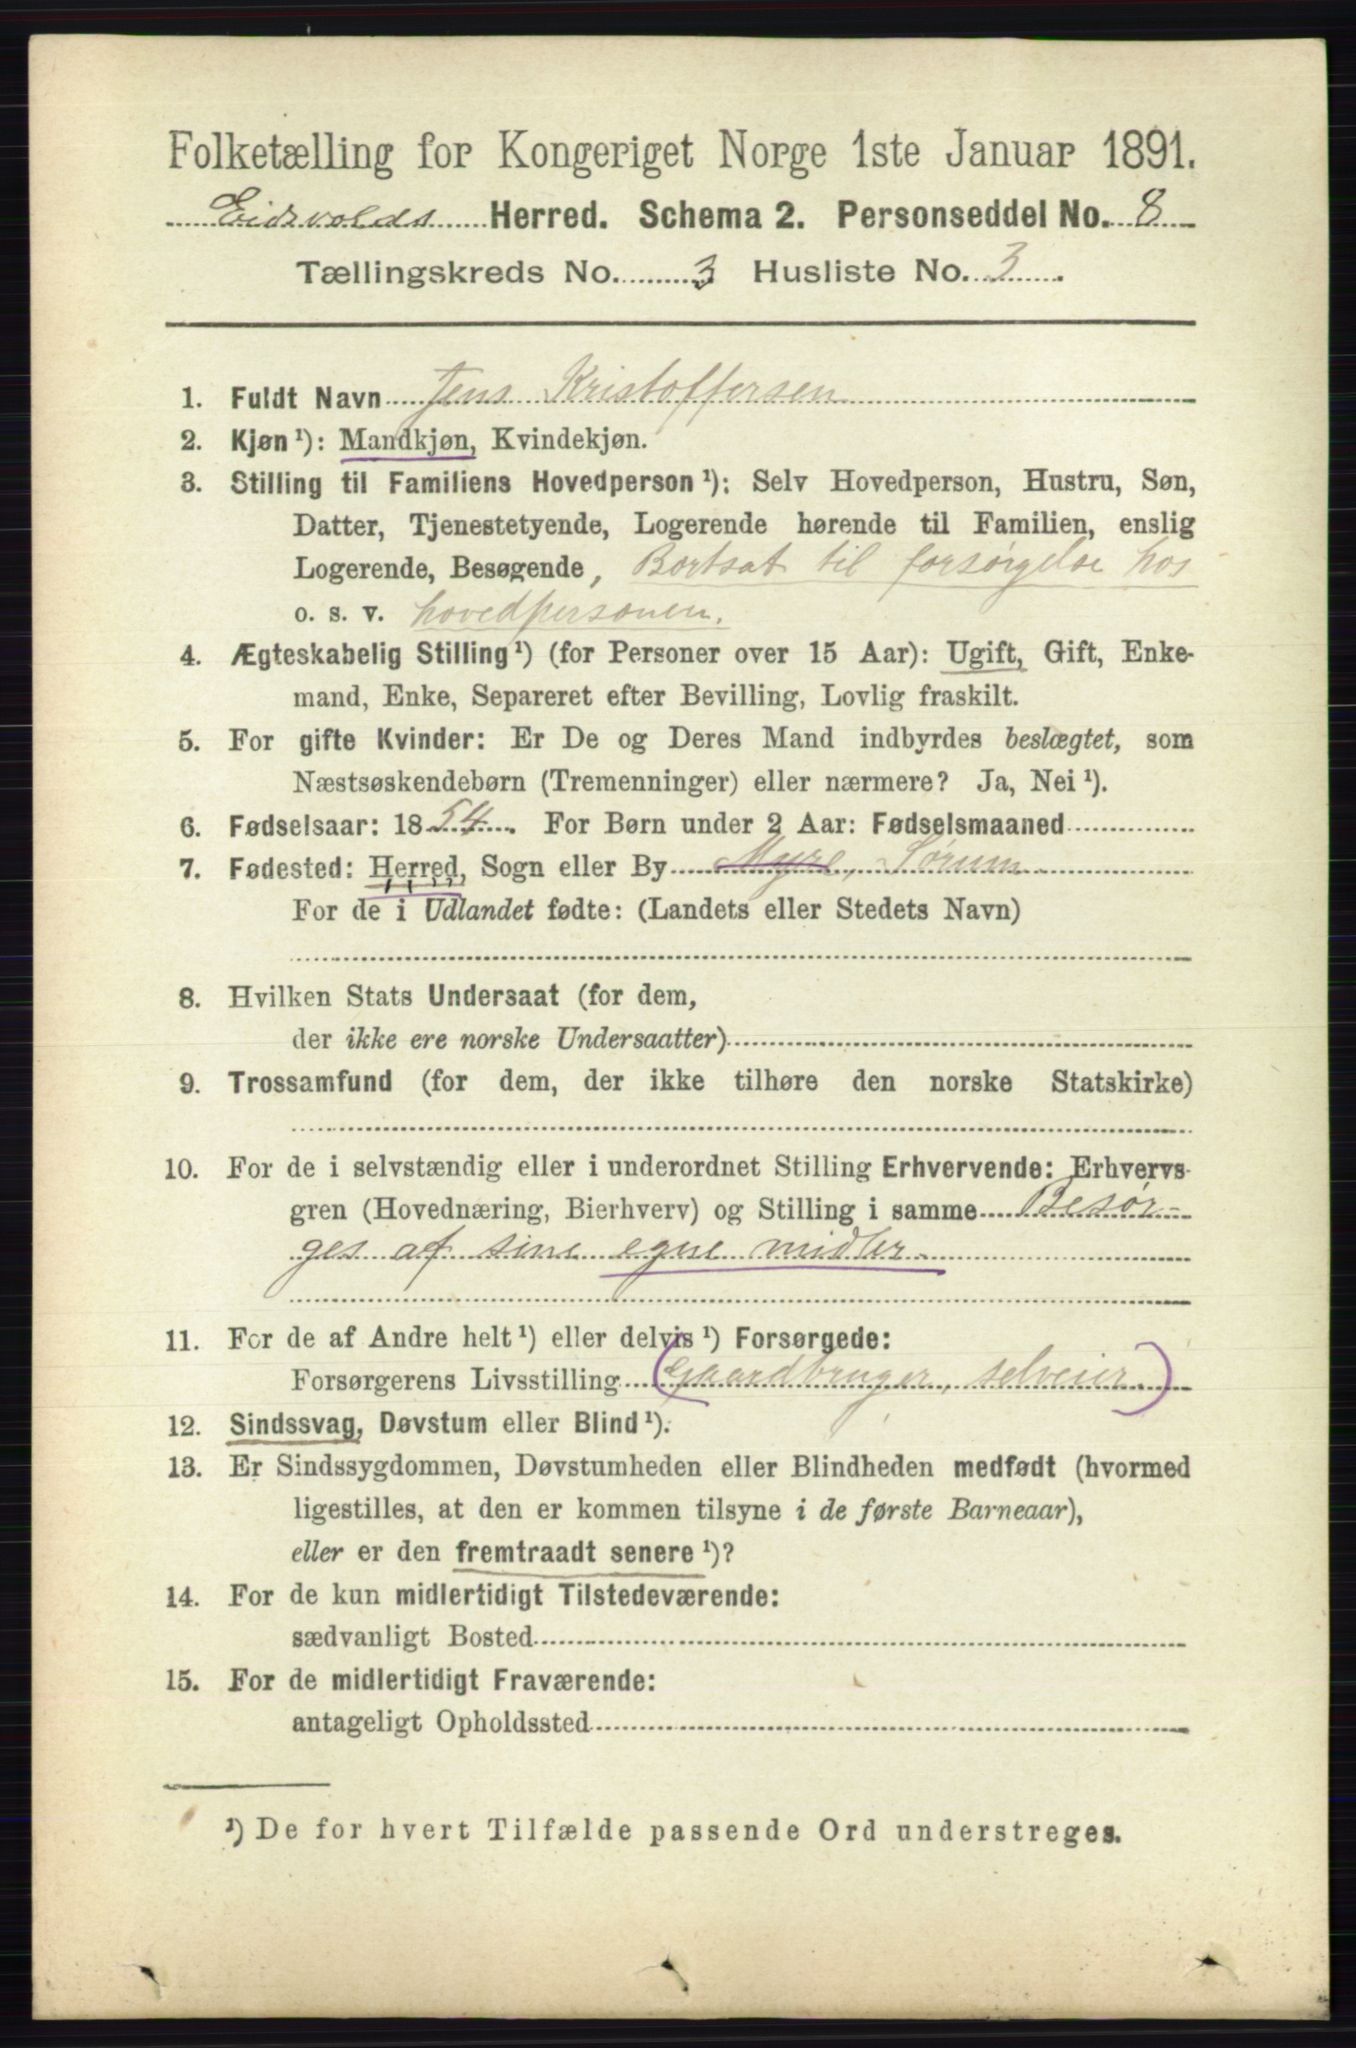 Folketælling for Kongeriget Norge 1ste Januar 1891.
Eidsvolds Herred. Schema 2. Personseddel No. 8
Tællingskreds No. 3 Husliste No. 3.
1. Fuldt Navn Jens Kristoffersen
2. Kjøn ¹): Mandkjøn, Kvindekjøn.
3. Stilling til Familiens Hovedperson ¹): Selv Hovedperson, Hustru, Søn,
Datter, Tjenestetyende, Logerende hørende til Familien, enslig
Logerende, Besøgende, Bortsat til forsørgelse hos
o. s. v. hovedpersonen.
4. Ægteskabelig Stilling ¹) (for Personer over 15 Aar): Ugift, Gift, Enke-
mand, Enke, Separeret efter Bevilling, Lovlig fraskilt.
5. For gifte Kvinder: Er De og Deres Mand indbyrdes beslægtet, som
Næstsøskendebørn (Tremenninger) eller nærmere? Ja, Nei ¹).
6. Fødselsaar: 1854. For Børn under 2 Aar: Fødselsmaaned
7. Fødested: Herred, Sogn eller By Myre, Sørum.
For de i Udlandet fødte: (Landets eller Stedets Navn)
8. Hvilken Stats Undersaat (for dem,
der ikke ere norske Undersaatter)
9. Trossamfund (for dem, der ikke tilhøre den norske Statskirke)
10. For de i selvstændig eller i underordnet Stilling Erhvervende: Erhvervs-
gren (Hovednæring, Bierhverv) og Stilling i samme Besør-
ges af sine egne midler.
11. For de af Andre helt ¹) eller delvis ¹) Forsørgede:
Forsørgerens Livsstilling (gaardbruger, selveier.)
12. Sindssvag, Døvstum eller Blind ¹).
13. Er Sindssygdommen, Døvstumheden eller Blindheden medfødt (hvormed
ligestilles, at den er kommen tilsyne i de første Barneaar),
eller er den fremtraadt senere ¹)?
14. For de kun midlertidigt Tilstedeværende:
sædvanligt Bosted
15. For de midlertidigt Fraværende:
antageligt Opholdssted
¹) De for hvert Tilfælde passende Ord understreges.